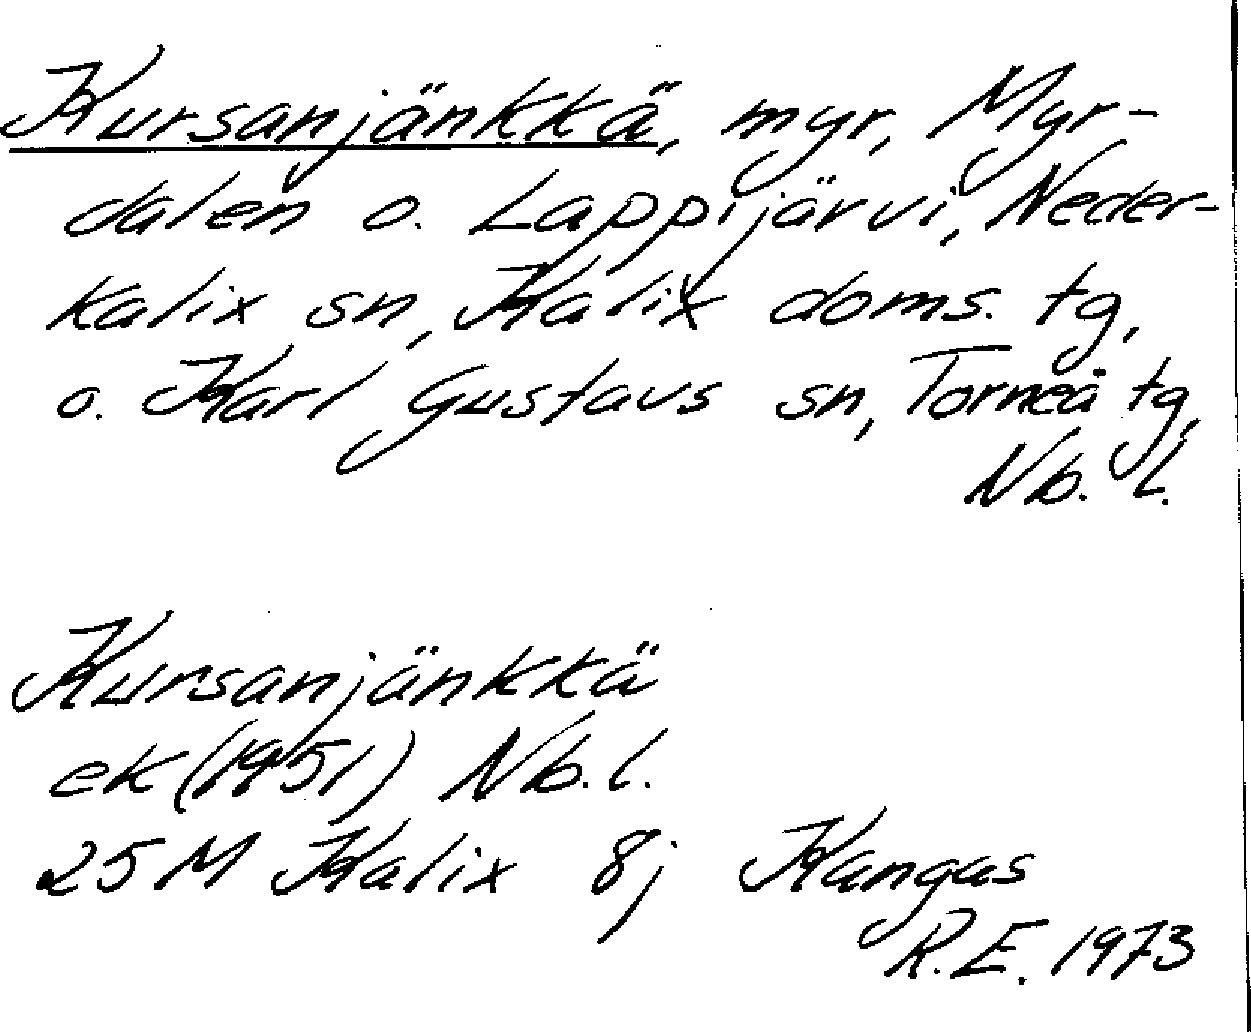 Kursanjänkkä, myr, Myr-
dalen o. Lappijärvi, Neder-
kalix sn, Kalix doms. tg,
o. Karl Gustavs sn, Torneå tg,
Nb. l.
Kursanjänkkä
ek (1951) Nb. l.
25 M Kalix 8j Kangas
R.E. 1973